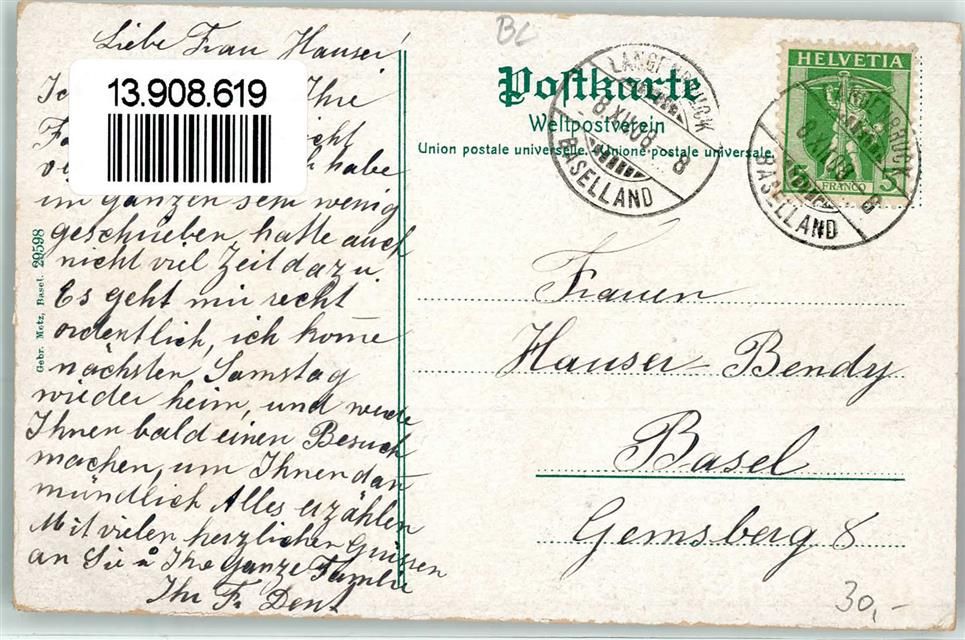 Liebe Frau Hauser!
13.908.619
Ich Ihre
habe
im ganzen sehr wenig
geschrieben, hatte auch
nicht viel Zeit dazu.
Es geht mir recht
ordentlich, ich kom̅e
nächsten Samstag
wieder heim, und werde
Ihnen bald einen Besuch
machen, um Ihnen dan
mündlich Alles erzählen
Mit vielen herzlichen Grüssen
an Sie u Ihre ganze Familie
Ihr F. Dent
Gebr. Metz, Basel. 29598
BL
Postkarte
Weltpostverein
Union postale universelle. Unione postale universale
LANGENBRUCK
8.XII.08. 8
BASELLAND
HELVETIA
5 5
FRANCO
LANGENBRUCK
8.XII.08. 8
BASELLAND
Frauen
Hauser-Bendy
Basel
Gemsberg 8
30,-